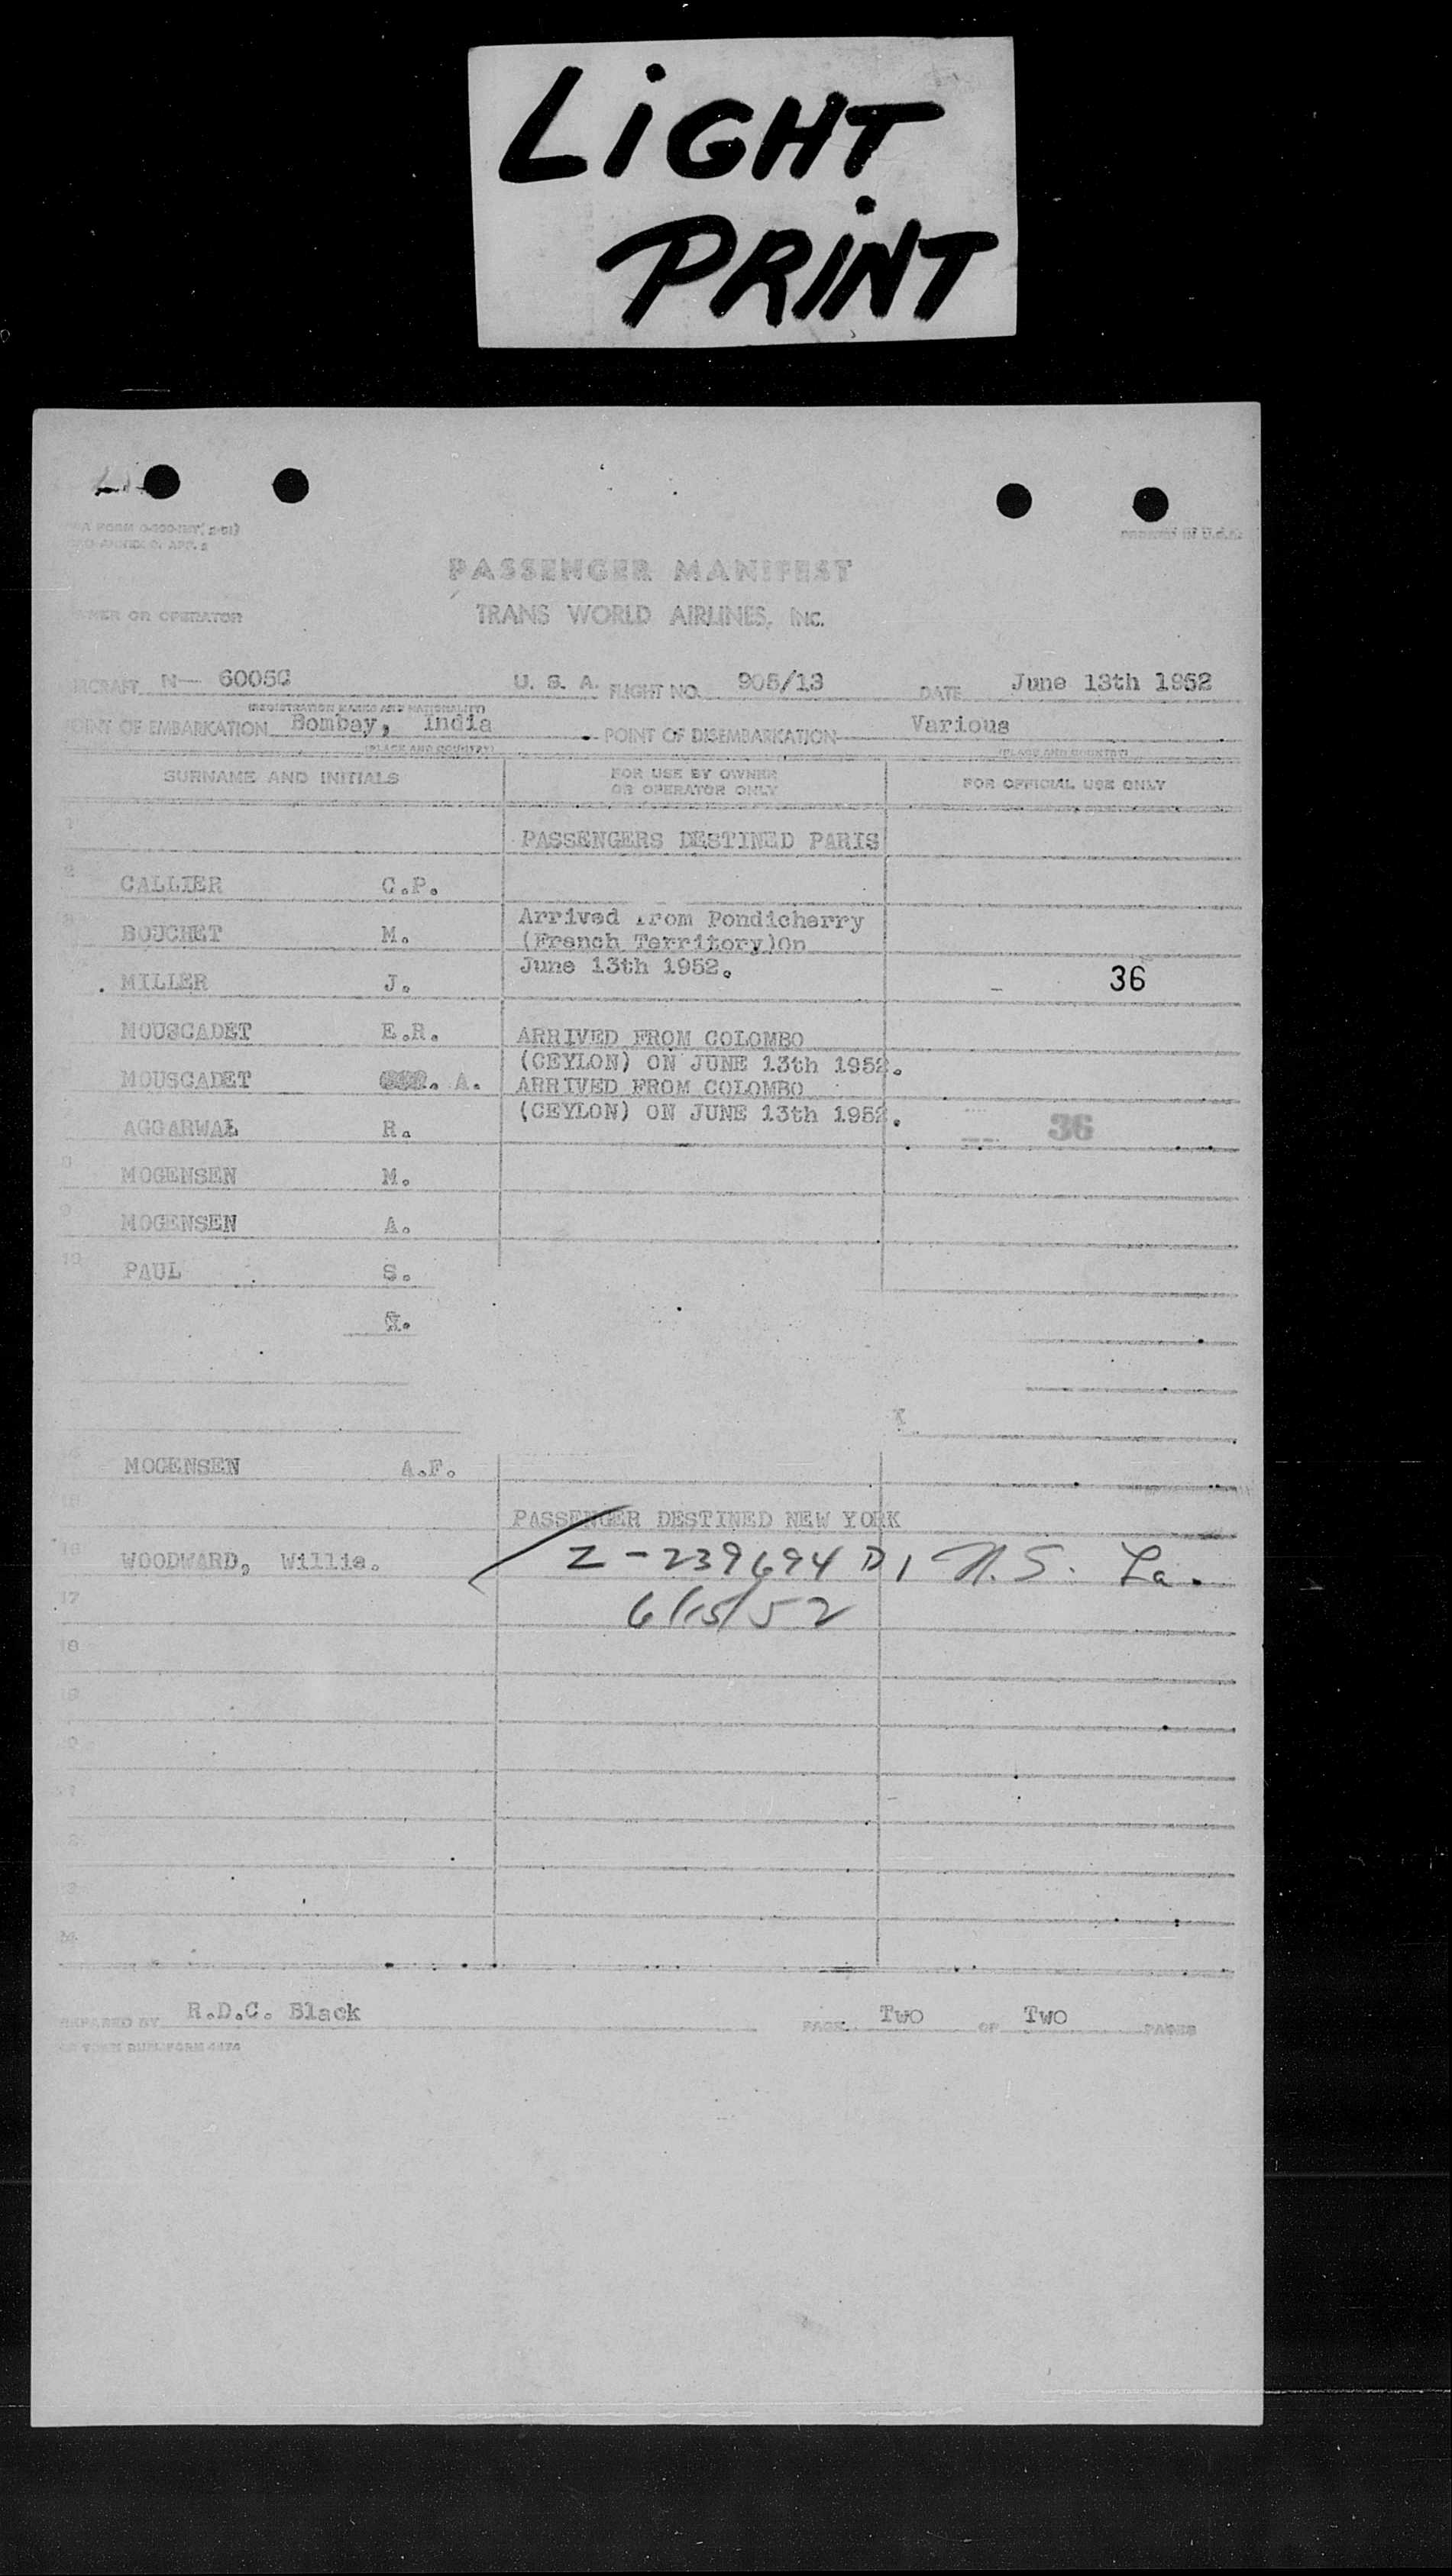 LiGHT
PRiNT
PRINTED IN U.S.A.
PASSENGER MANIFEST
OWNER OR OPERATOR TRANS WORLD AIRLINES, INC.
AIRCRAFT N— 6005C U. S. A. FLIGHT NO. 905/13 DATE June 13th 1952
(REGISTRATION MARKS AND NATIONALITY)
POINT OF EMBARKATION Bombay, India POINT OF DISEMBARKATION Various
(PLACE AND COUNTRY) (PLACE AND COUNTRY)
SURNAME AND INITIALS FOR USE BY OWNER OR OPERATOR ONLY FOR OFFICIAL USE ONLY
1 PASSENGERS DESTINED PARIS
2 CALLIER C.P.
BOUCHET M. Arrived from Pondicherry
(French Territory)On
MILLER J. June 13th 1952. 36
MOUSCADET E.R. ARRIVED FROM COLOMBO
(CEYLON) ON JUNE 13th 1952.
MOUSCADET A. ARRIVED FROM COLOMBO
(CEYLON) ON JUNE 13th 1952.
AGGARWAL R. 36
MOGENSEN M.
9 MOGENSEN A.
10 PAUL S.
MOGENSEN A.F.
PASSENGER DESTINED NEW YORK
16 WOODWARD, Willie. Z-239694 D, N.S. La.
17 6/15/52
18
19
PREPARED BY R.D.C. Black PAGE Two OF Two PAGES